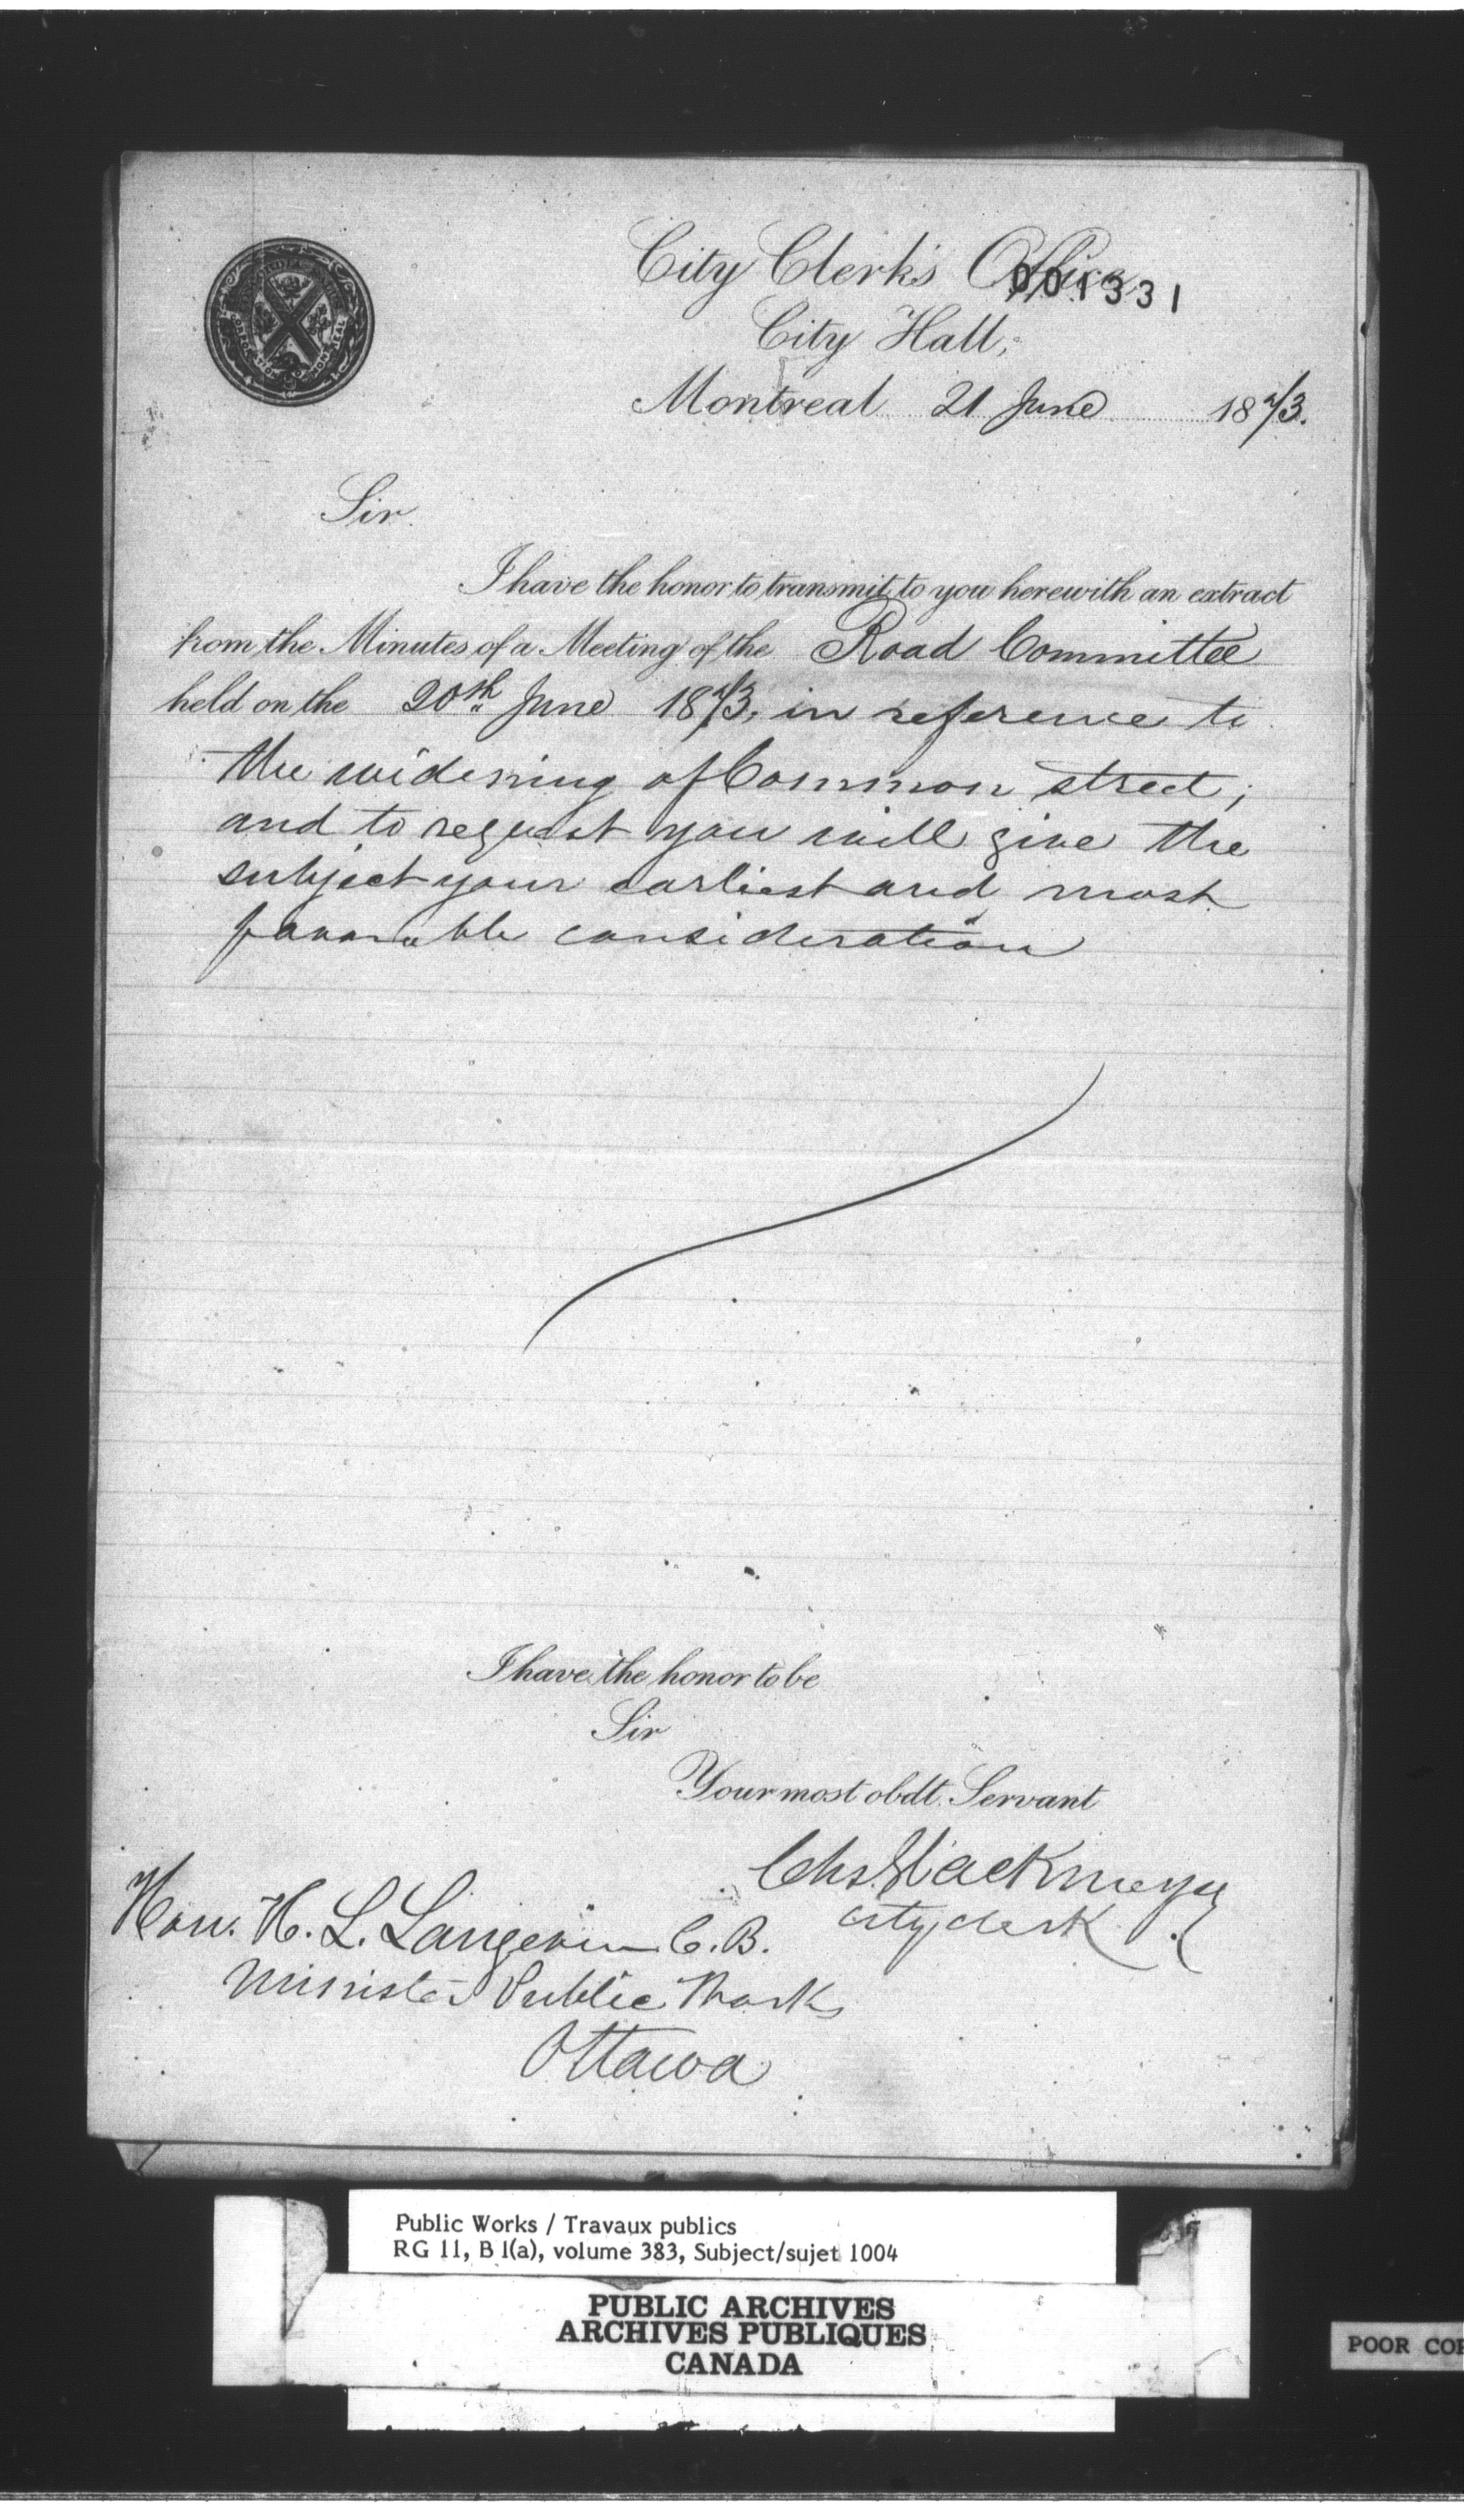 City Clerk's Office
001331
City Hall,
Montreal 21 June 1873.
Sir
I have the honor to transmit to you herewith an extract
from the Minutes of a Meeting of the Road Committee
held on the 20th June 1873, in reference to
the widening of Common street;
and to request you will give the
subject your earliest and most
favorable consideration
I have the honor to be
Sir
Your most obdt. Servant
Chs. Glackmeyer
City Clerk
Hon. H. L. Langevin C. B.
Minister Public Works
Ottawa
Public Works / Travaux publics
RG 11, B 1(a), volume 383, Subject/sujet 1004
PUBLIC ARCHIVES
ARCHIVES PUBLIQUES
CANADA
POOR COP